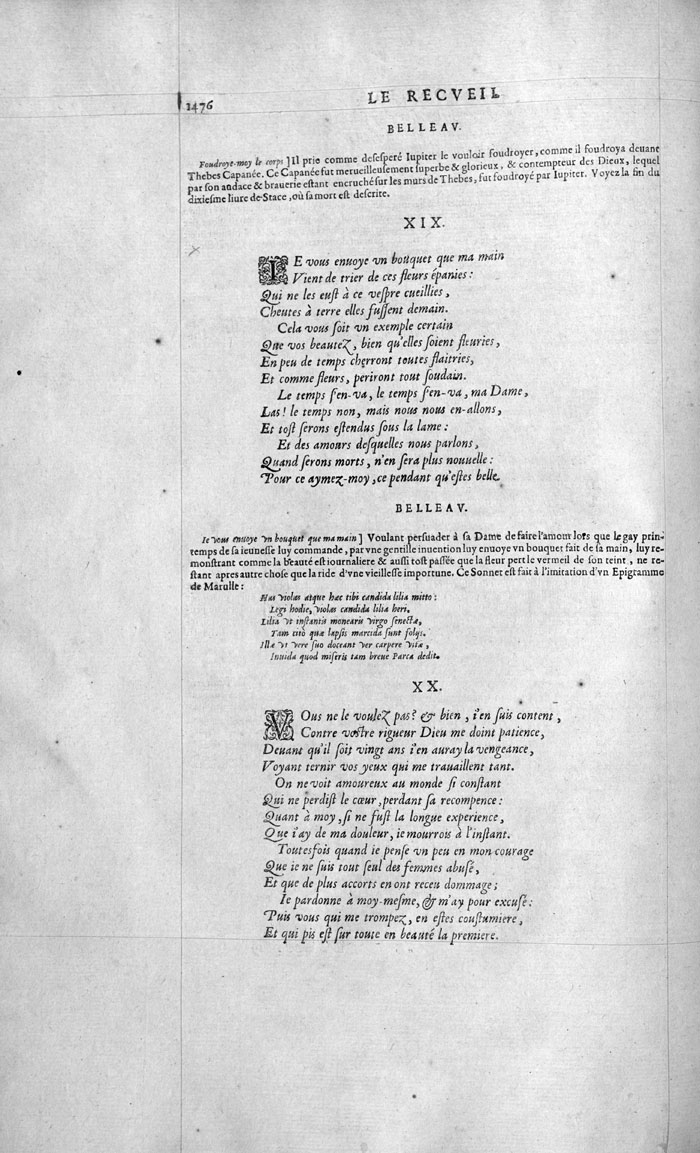 1476
LE RECVEIL
BELLEAV.
Foudroye-moy le corps ] Il prie comme desesperé Iupiter le vouloir foudroyer, comme il foudroya deuant
Thebes Capanée. Ce Capanée fut merueilleusement superbe & glorieux, & contempteur des Dieux, lequel
par son audace & brauerie estant encruché sur les murs de Thebes, fut foudroyé par Iupiter. Voyez la fin du
dixiesme liure de Stace, où sa mort est descrite.
XIX.
IE vous enuoye vn bouquet que ma main
Vient de trier de ces fleurs épanies :
Qui ne les eust à ce vespre cueillies,
Cheutes à terre elles fussent demain.
Cela vous soit vn exemple certain
Que vos beautez, bien qu'elles soient fleuries,
En peu de temps cherront toutes flaitries,
Et comme fleurs, periront tout soudain.
Le temps s'en-va, le temps s'en-va, ma Dame,
Las! le temps non, mais nous nous en-allons,
Et tost serons estendus sous la lame :
Et des amours desquelles nous parlons,
Quand serons morts, n'en sera plus nouuelle :
Pour ce aymez-moy, ce pendant qu'estes belle.
BELLEAV.
Ie vous enuoye vn bouquet que ma main ] Voulant persuader à sa Dame de faire l'amour lors que le gay prin-
temps de sa ieunesse luy commande, par vne gentille inuention luy enuoye vn bouquet fait de sa main, luy re-
monstrant comme la beauté est iournaliere & aussi tost passée que la fleur pert le vermeil de son teint, ne re-
stant apres autre chose que la ride d'vne vieillesse importune. Ce Sonnet est fait à l'imitation d'vn Epigramme
de Marulle :
Has violas atque hæc tibi candida lilia mitto :
Legi hodie, violas candida lilia heri.
Lilia vt instantis monearis virgo senectæ,
Tam citò quæ lapsis marcida sunt folijs.
Illæ vt vere suo doceant ver carpere vitæ,
Inuida quod miseris tam breue Parca dedit.
XX.
VOus ne le voulez pas? & bien, i'en suis content,
Contre vostre rigueur Dieu me doint patience,
Deuant qu'il soit vingt ans i'en auray la vengeance,
Voyant ternir vos yeux qui me trauaillent tant.
On ne voit amoureux au monde si constant
Qui ne perdist le cœur, perdant sa recompence :
Quant à moy, si ne fust la longue experience,
Que i'ay de ma douleur, ie mourrois à l'instant.
Toutesfois quand ie pense vn peu en mon courage
Que ie ne suis tout seul des femmes abusé,
Et que de plus accorts en ont receu dommage ;
Ie pardonne à moy-mesme, & m'ay pour excusé :
Puis vous qui me trompez, en estes coustumiere,
Et qui pis est sur toute en beauté la premiere.